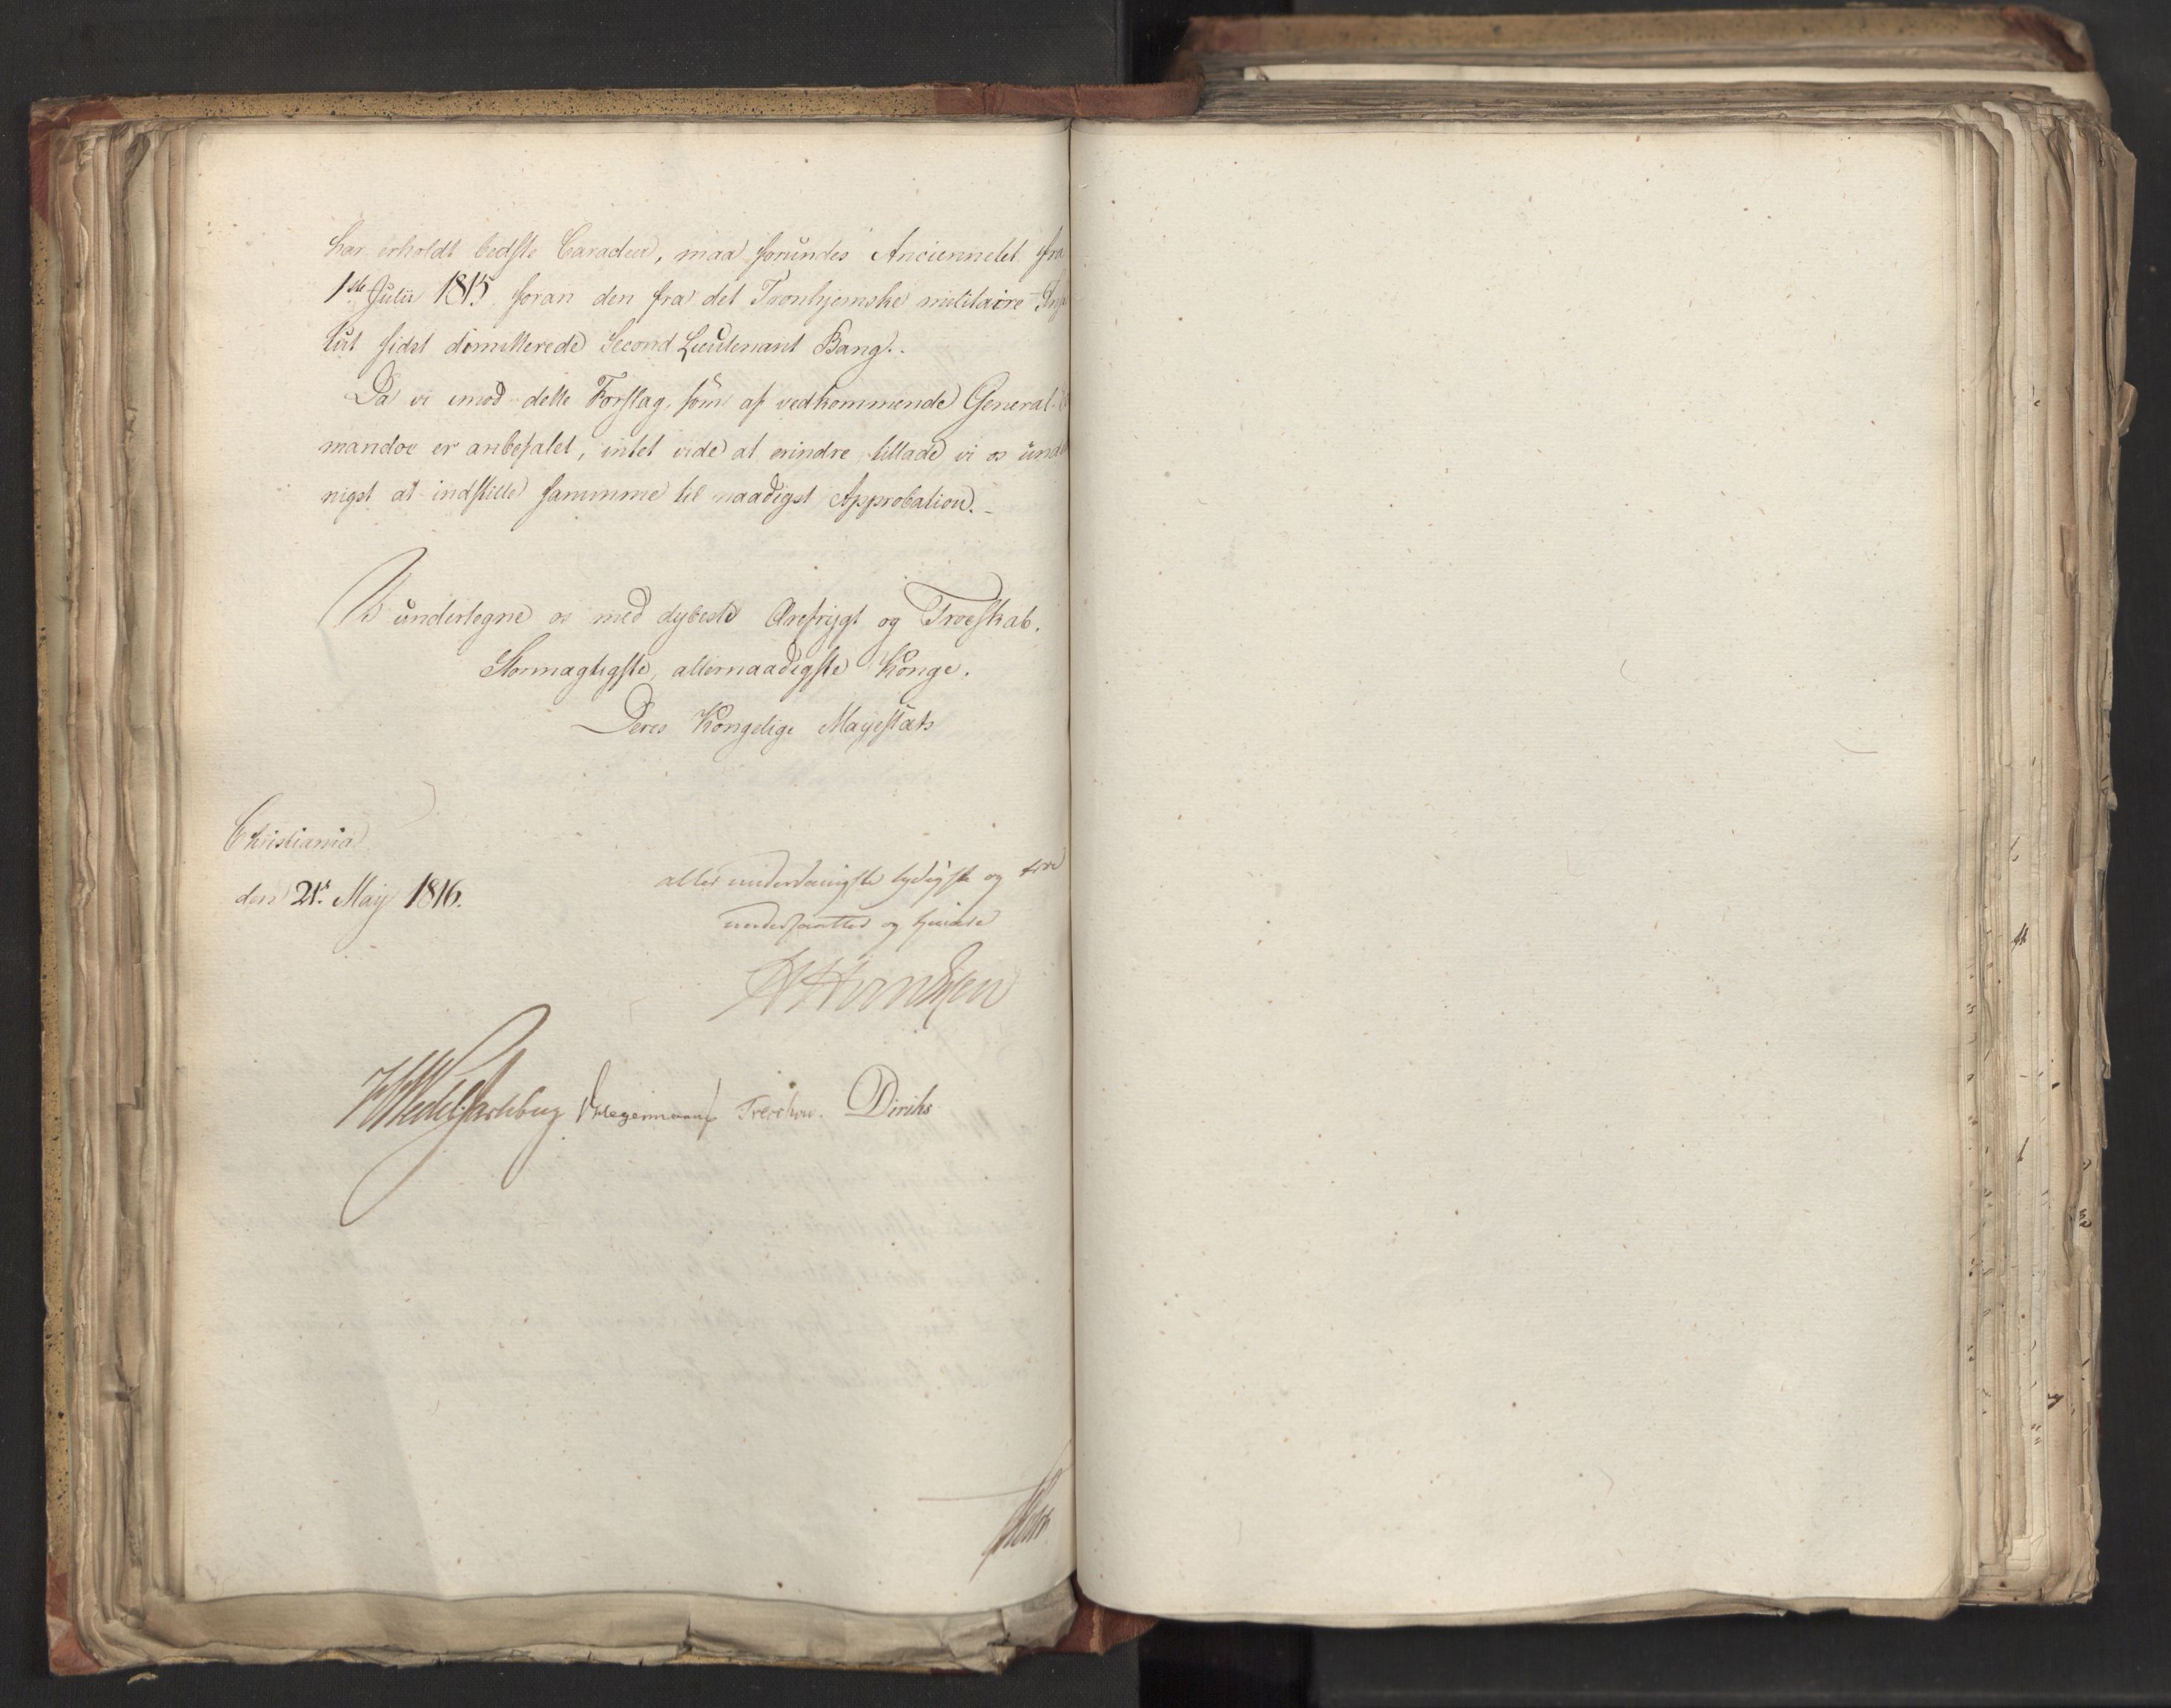 har erholdt bedste Caracteer, maa forundes Anciennetet fra
1ste Julii 1815 foran den fra det Tronhjemske militaire Insti
tut sidst dimitterede Second Lieutenant Bang.
Da vi imod dette Forslag, som af vedkommende General-
mandoe er anbefalet, intet vide at erindre, tillade vi os under
nigst at indstille samme til naadigst Approbation.
Vi undertegne os med dybeste Ærefrygt og Troeskab.
Stormægtigste, allernaadigste Konge.
Deres Kongelige Mayestæts
Christiania
den 21de May 1816.
allerunderdanigste lydigste og troe
undersaatter og tjenere
Hegermann Treschow. Diriks